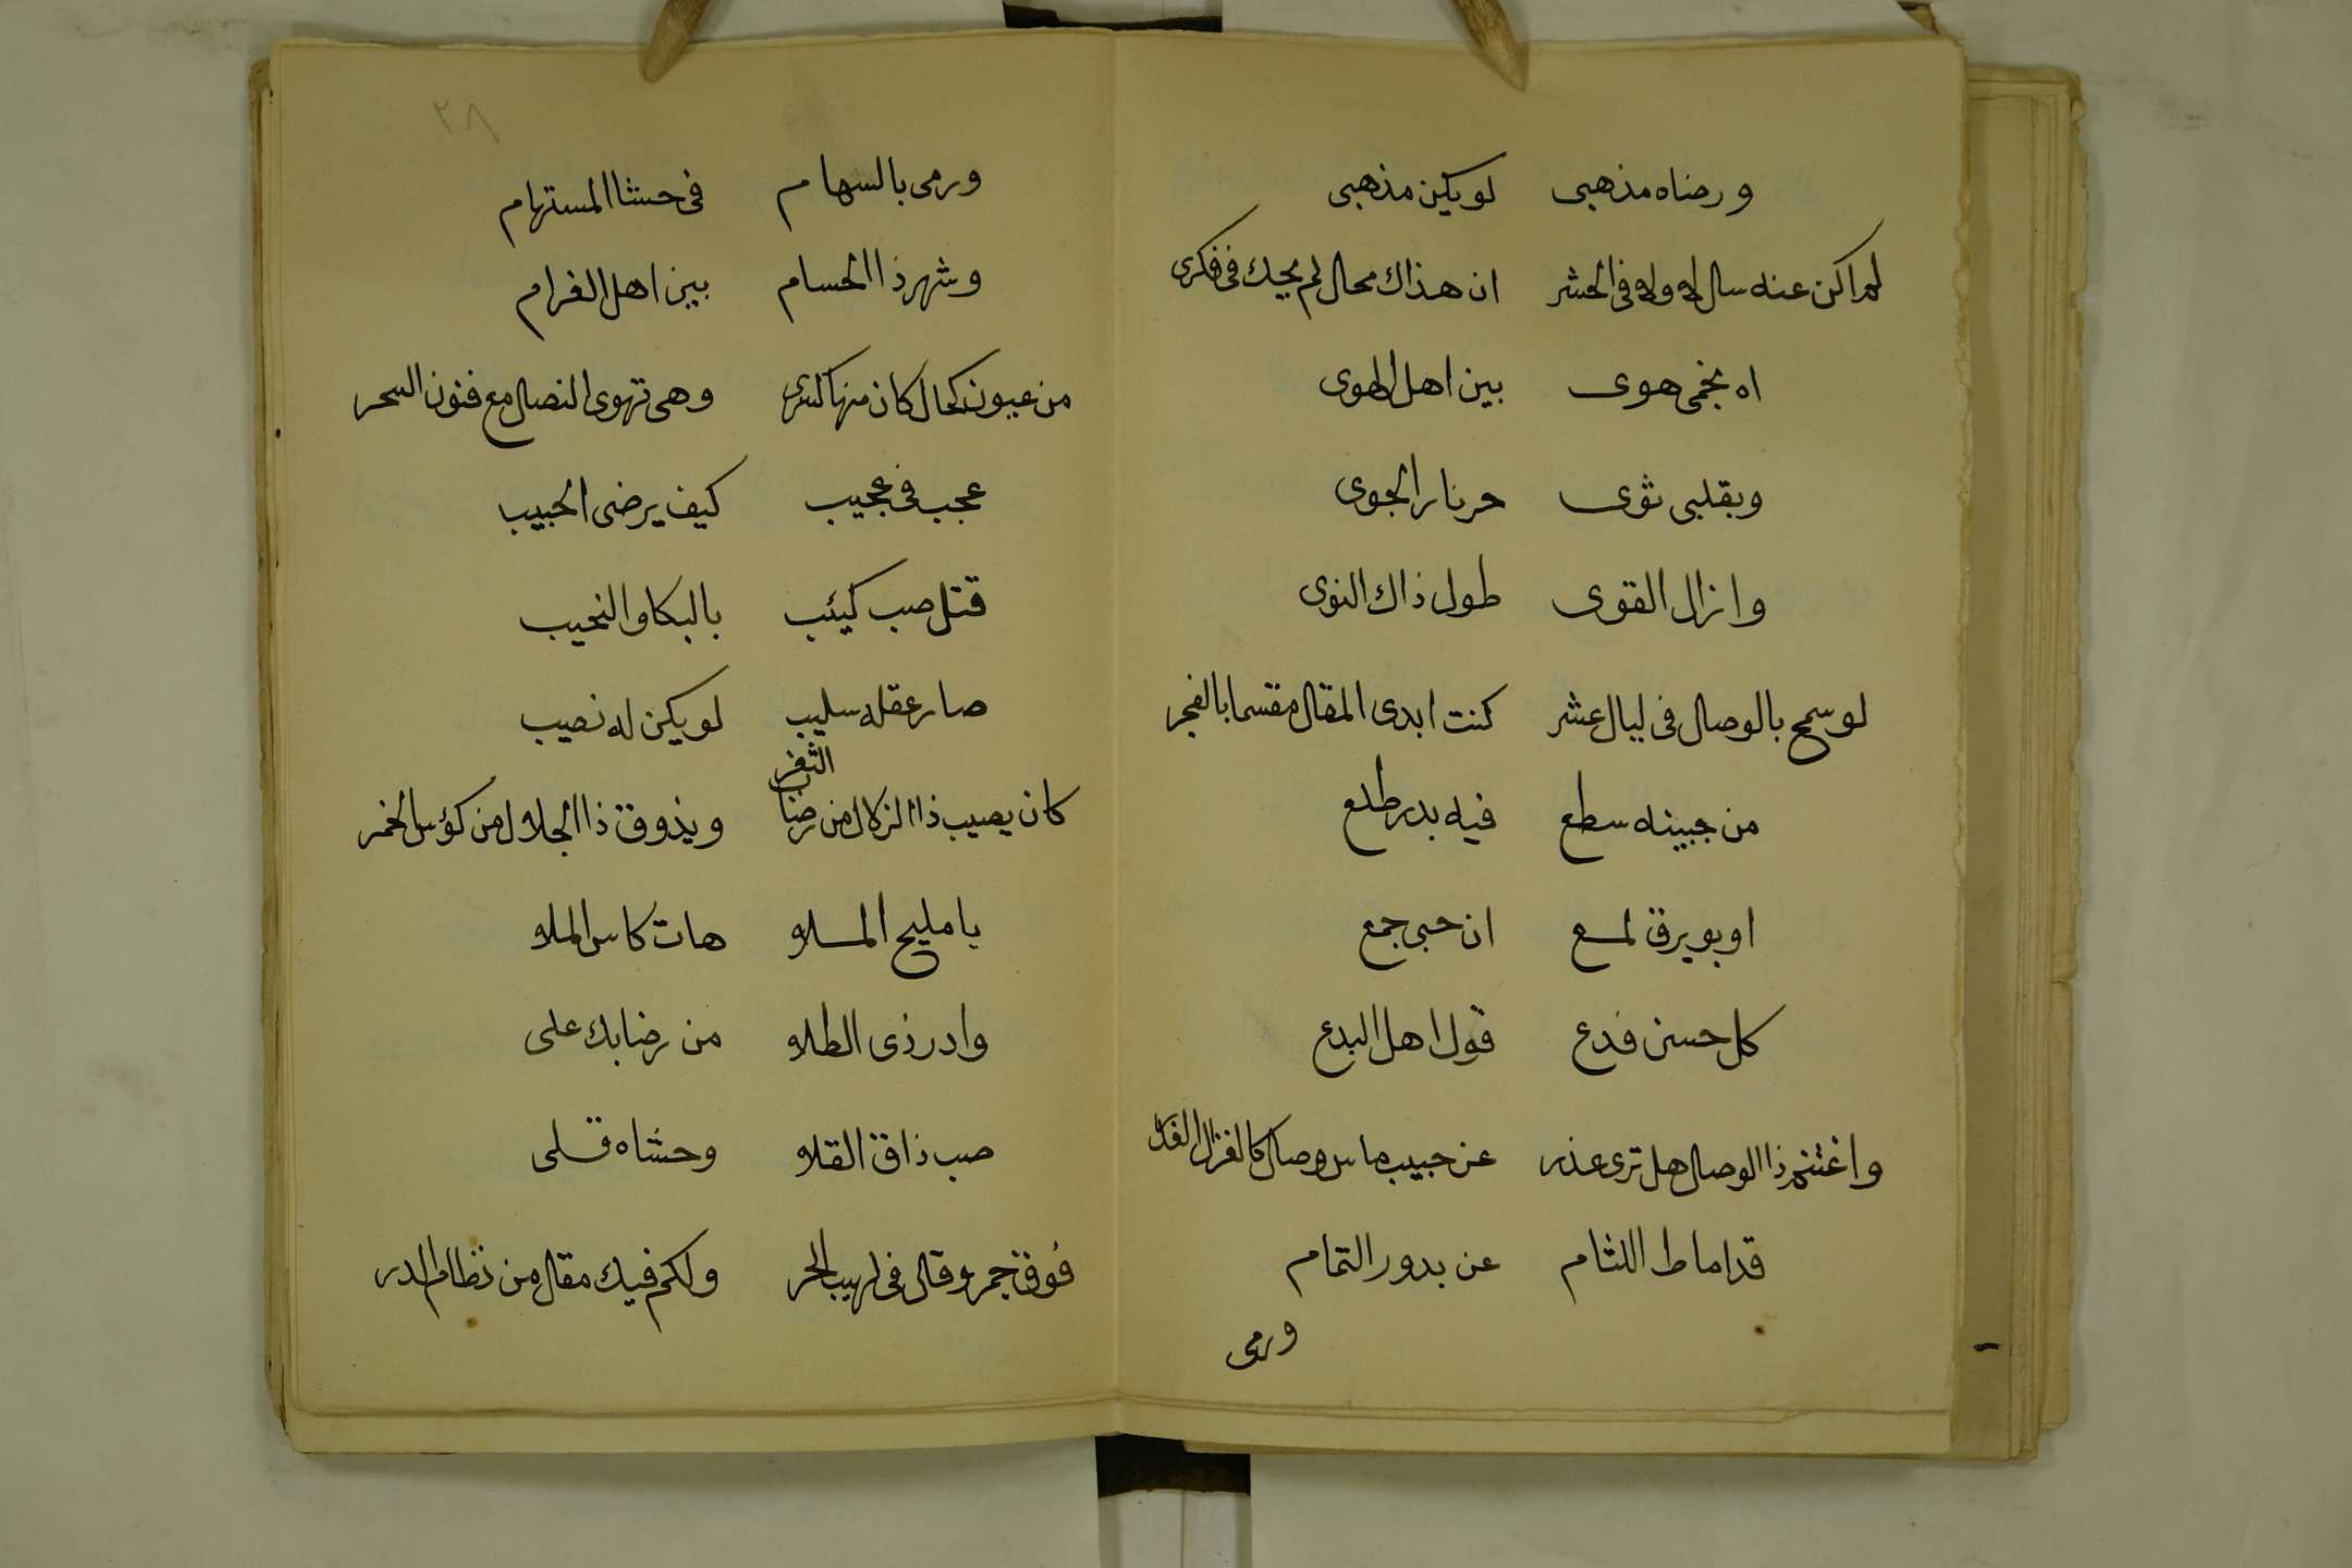 ورضاه مذهبى لو يكن مذهبى
لم اكن عنه سال له وله فى الحشر ان هذاك محال لم يحك فى فكرى
اه نجمى هوى بين اهل الهوى
وبقلبى ثوى حر نار الجوى
وازال القوى طول ذاك النوى
لو سمح بالوصال فى ليال عشر كنت ابدى المقال مقسما بالفجر
من جبينه سطع فيه بدر طلع
او بويرق لمع ان حبى جمع
كل حسن فدع قول اهل البدع
واغتنم ذا الوصال هل ترى عذر عن حبيب ماس وصال كالغزال
قد اماط اللثام عن بدور التمام
ورمى
٢٨
ورمى بالسهام فى حشا المستهام
وشهر ذا الحسام بين اهل الغرام
من عيون كحال كان منها وهى تهوى النصال مع فنون السحر
عجب فى عجيب كيف يرضى الحبيب
قتل صب كيئب بالبكا والنحيب
صار عقله سليب لو يكن له نصيب
كان يصيب ذا الزلال من رضاب الثغر ويذوق ذا الجلال من كؤس الخمر
يا مليح الملا هات كاس الملا
وادر ذى الطلا من رضابك على
صب ذاق القلا وحشاه قلى
فوق جمر وقال فى لهيب الحر ولكم فيك مقال من نظام الدر